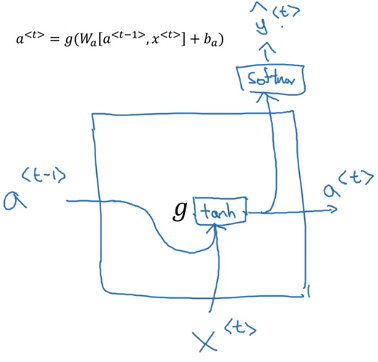 ŷ<t>
a<t> = g(Wa[a<t-1>, x<t>] + ba)
softmax
a<t-1>
g tanh
a<t>
x<t>